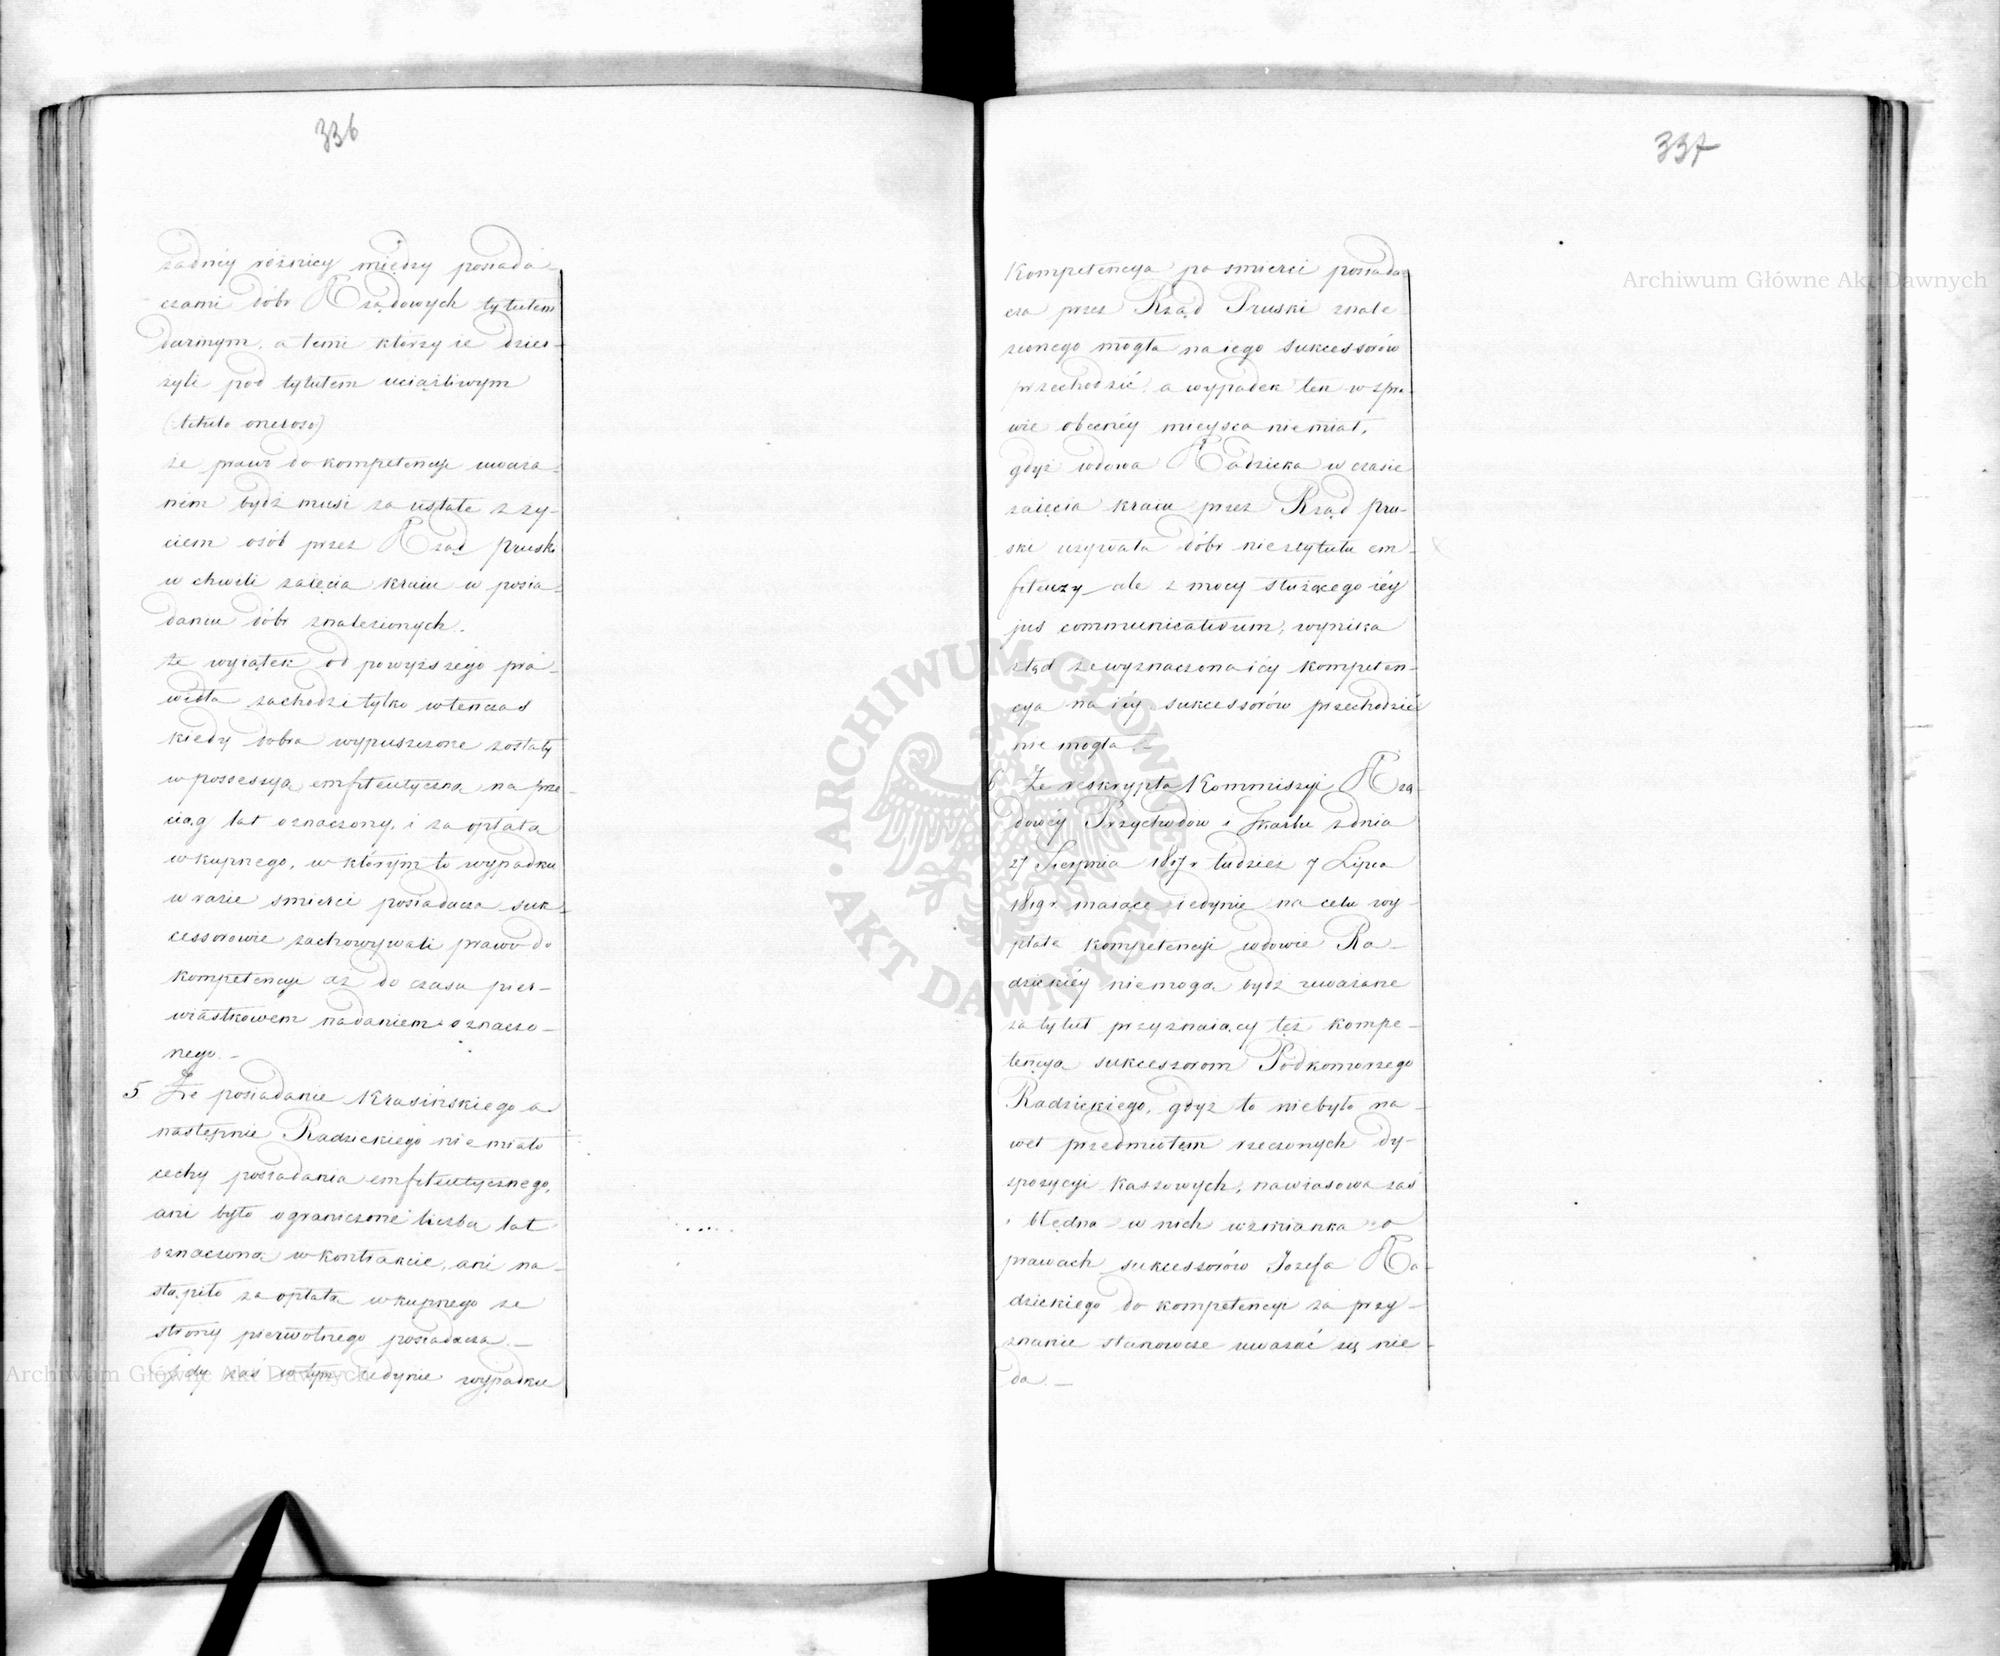 336
żadnéy różnicy między posiada-
czami dóbr Rządowych tytułem
darmym, a temi którzy ie dzier-
żyli pod tytułem uciążliwym
(titulo oneroso)
że prawo do kompetencyi uważa-
nem bydź musi za ustałe z ży-
ciem osób przez Rząd pruski
w chwili zaięcia kraiu w posia-
daniu dóbr znalezionych.
że wyiątek od powyższego pra-
widła zachodzi tylko wtenczas
kiedy dobra wypuszczone zostały
w possessyą emfiteutyczną na prze-
ciąg lat oznaczony, i za opłatą
wkupnego, w którym to wypadku
w razie śmierci posiadacza suk-
cessorowie zachowywali prawo do
kompetencyi aż do czasu pier-
wiastkowem nadaniem oznaczo-
nego. -
5 Że posiadanie Krasińskiego a
następnie Radzickiego nie miało
cechy posiadania emfiteutycznego,
ani było ograniczone liczbą lat
oznaczoną w kontrakcie, ani na-
stąpiło za opłatą wkupnego ze
strony pierwotnego posiadacza. -
Gdy zaś w tym iedynie wypadku
337
Kompetencya po śmierci posiada-
cza przez Rząd Pruski znale-
zionego mogła na iego sukcessorów
przechodzić, a wypadek ten w spra-
wie obecnéy mieysca niemiał,
gdyż wdowa Radzicka w czasie
zaięcia kraiu przez Rząd pru-
ski używała dóbr nie z tytułu em-
fiteuzy ale z mocy służącego iéy
jus communicativum, wynika
ztąd że wyznaczona iéy kompeten-
cya na iéy sukcessorów przechodzić
nie mogła. -
6 Że reskrypta Kommissyi Rzą-
dowéy Przychodów i Skarbu z dnia
27 Sierpnia 1817 r tudzież 7 Lipca
1819 r maiące iedynie na celu wy-
płatę kompetencyi wdowie Ra-
dzickiéy niemogą bydź uważane
za tytuł przyznaiący tęż kompe-
tencyą sukcessorom Podkomorzego
Radzickiego, gdyż to niebyło na-
wet przedmiotem rzeczonych dy-
spozycyi kassowych, nawiasowa zaś
i błędna w nich wzmianka o
prawach sukcessorów Józefa Ra-
dzickiego do kompetencyi za przy-
znanie stanowcze uważać się nie
da. -
Archiwum Główne Akt Dawnych
Archiwum Główne Akt Dawnych
ARCHIWUM GŁÓWNE AKT DAWNYCH